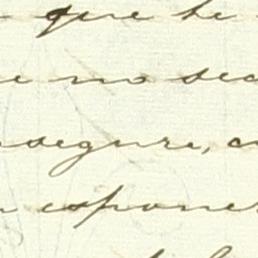 que he
no sea
segure, c
esponer